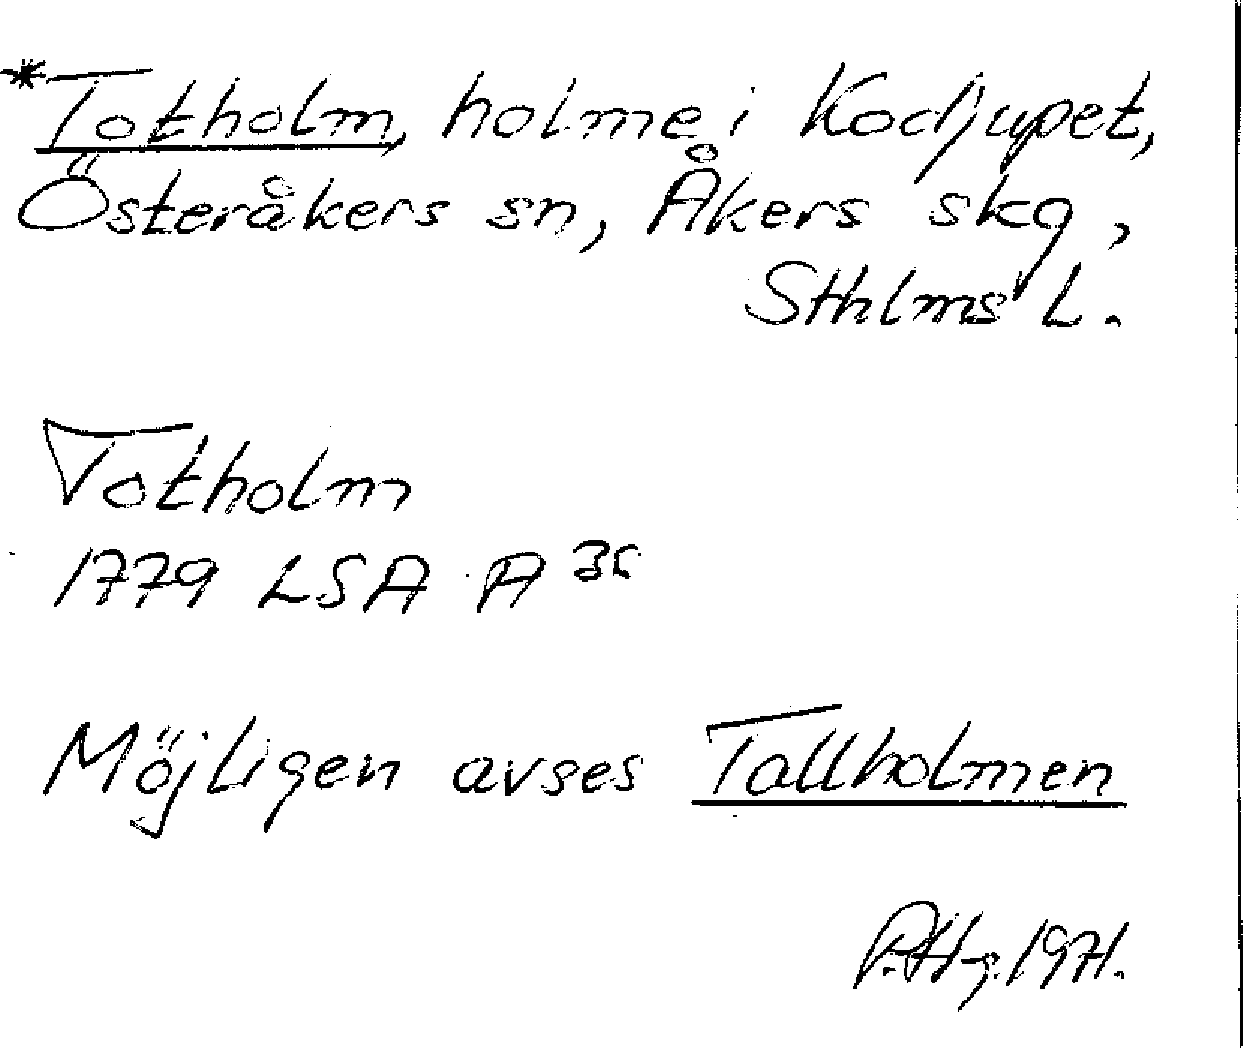 *Totholm, holme i Kodjupet,
Österåkers sn, Åkers skg,
Sthlms L.
Totholm
1779 LSA A 35
Möjligen avses Tallholmen
P.Hg. 1971.